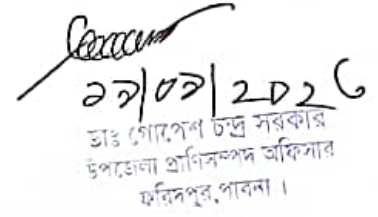 ২২|০২|202৬
ডাঃ গোপেশ চন্দ্র সরকার
উপজেলা প্রাণিসম্পদ অফিসার
ফরিদপুর, পাবনা ।